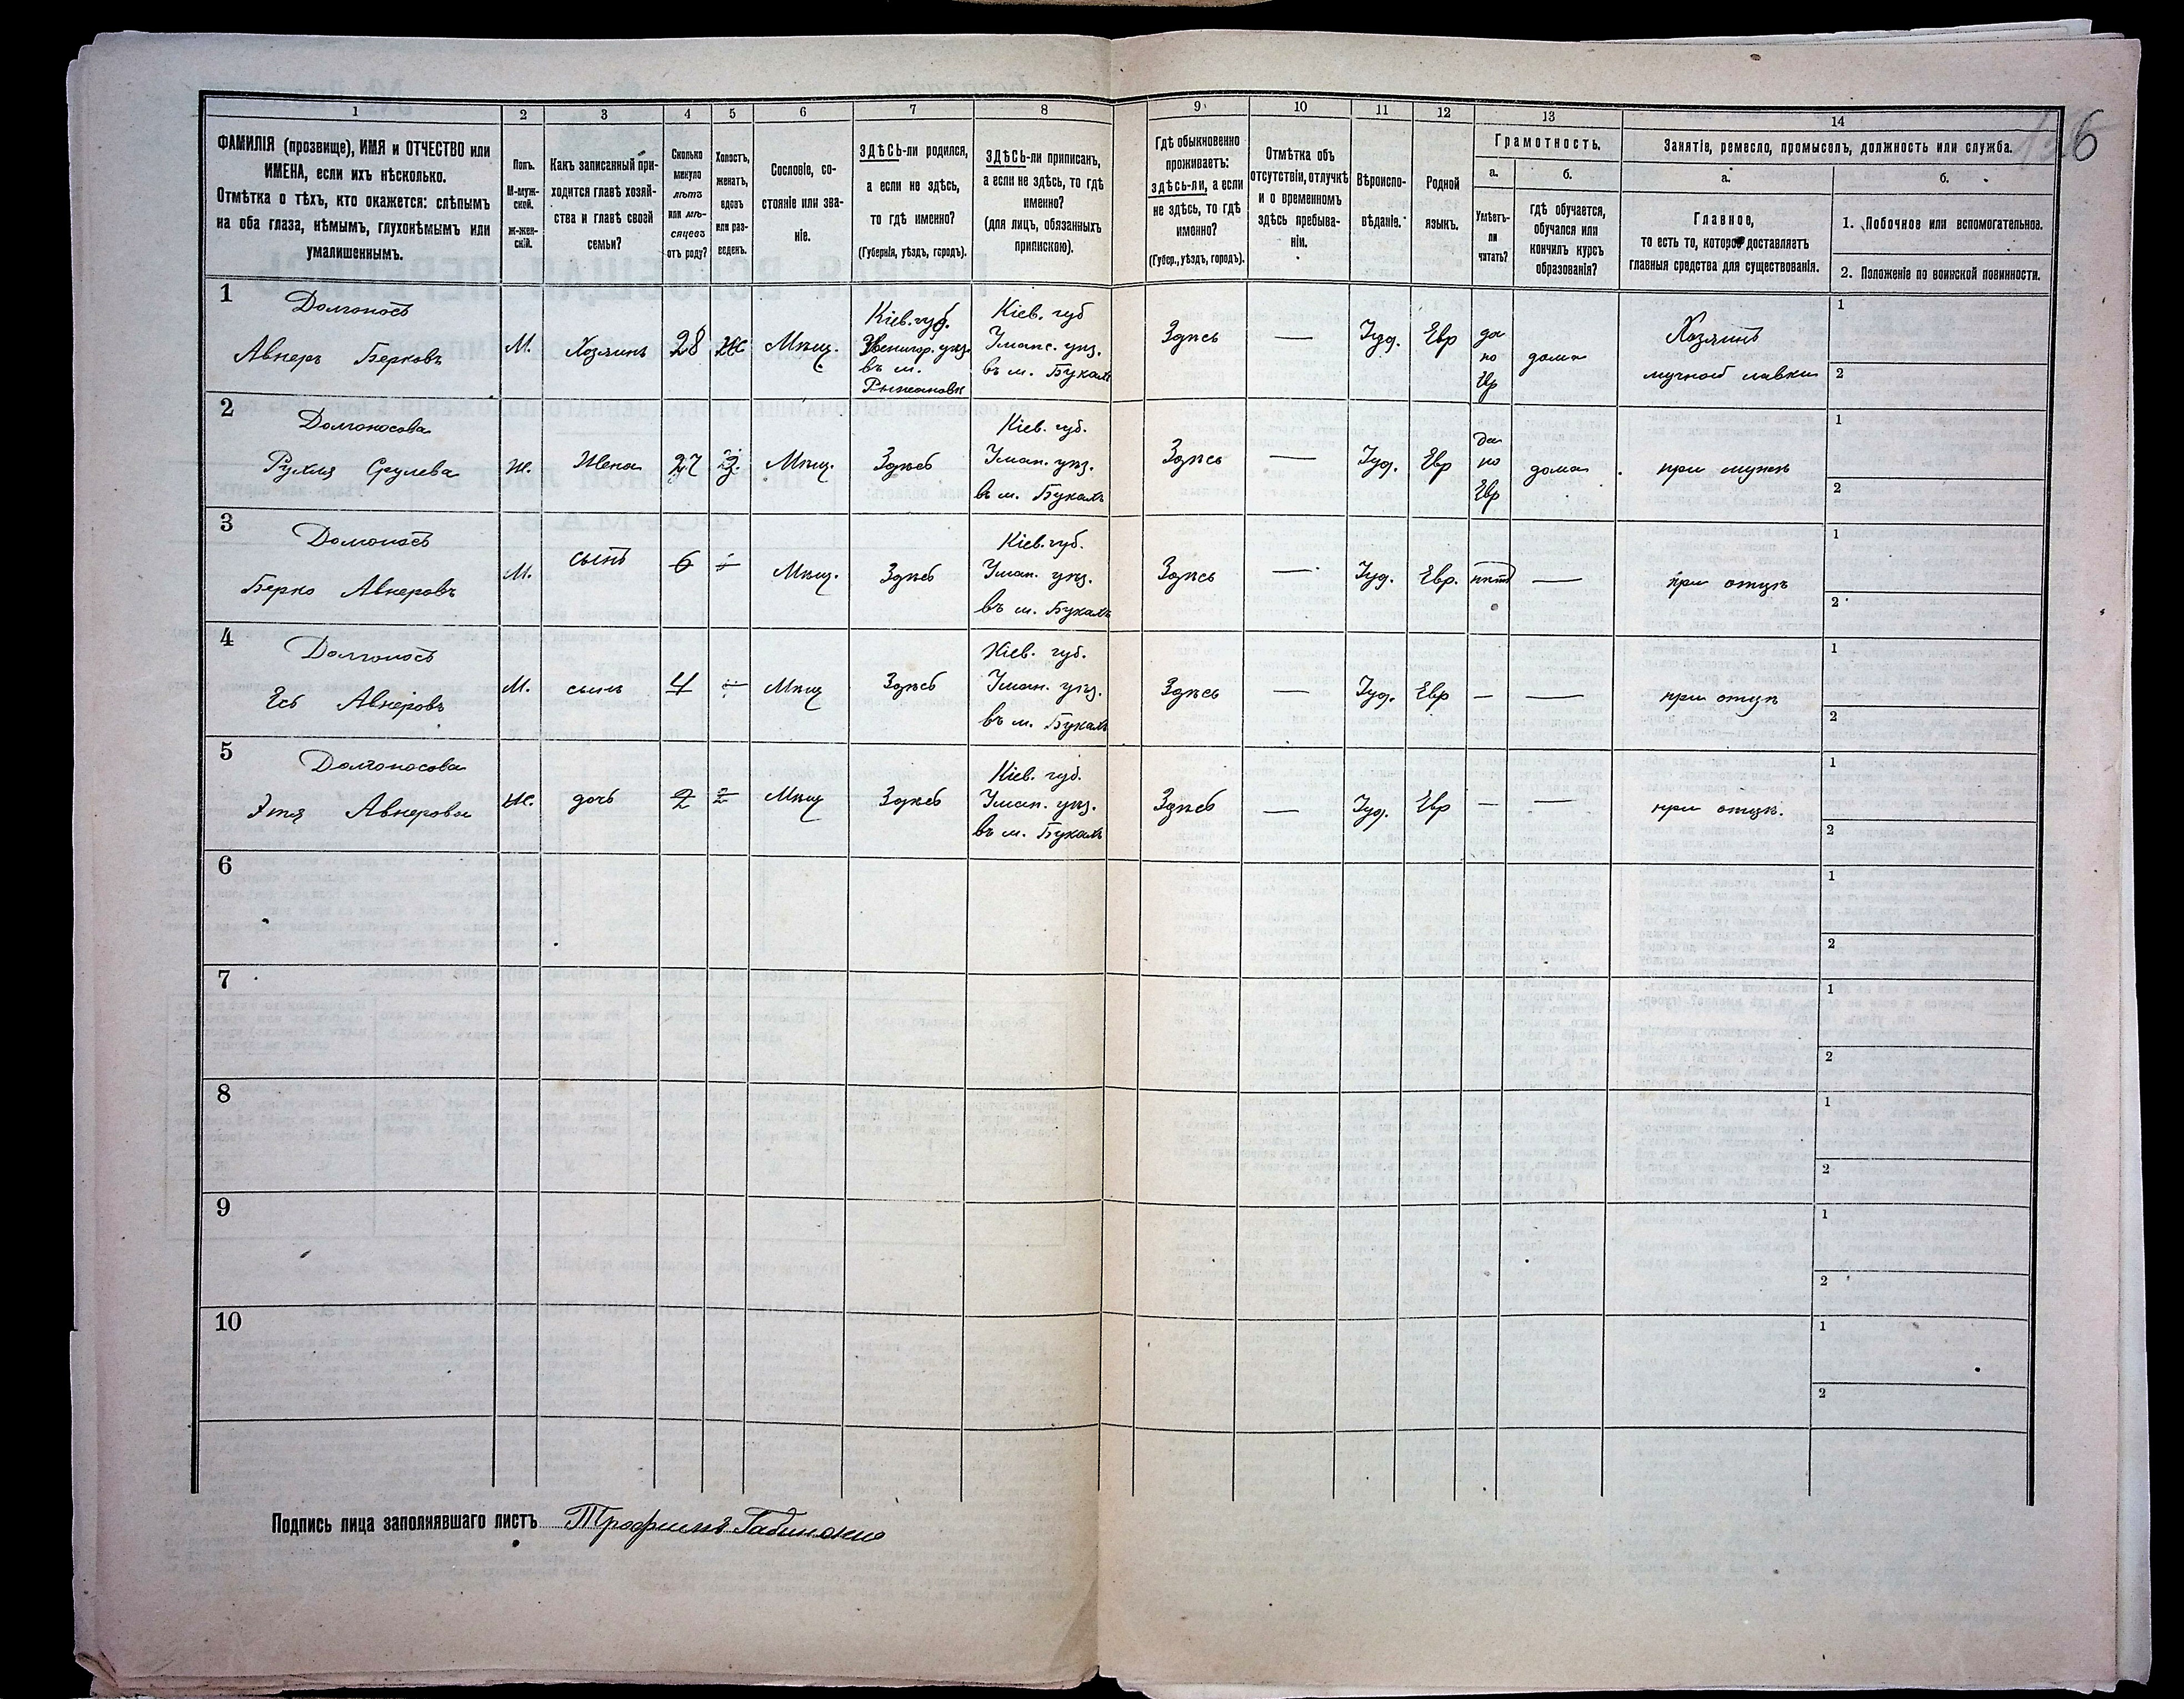 1 2 3 4 5 6 7 8 9 10 11 12 13 14
6
ФАМИЛІЯ (прозвище), ИМЯ и ОТЧЕСТВО или
ИМЕНА, если ихъ нѣсколько.
Отмѣтка о тѣхъ, кто окажется: слѣпымъ
на оба глаза, нѣмымъ, глухонѣмымъ или
умалишеннымъ.
Полъ.
М-муж-
ской.
ж-жен-
скій.
Какъ записанный при-
ходится главѣ хозяй-
ства и главѣ своей
семьи?
Сколько
минуло
лѣтъ
или мѣ-
сяцевъ
отъ роду?
Холостъ,
женатъ,
вдовъ
или раз-
веденъ.
Сословіе, со-
стояніе или зва-
ніе.
ЗДѢСЬ-ли родился,
а если не здѣсь,
то гдѣ именно?
(Губернія, уѣздъ, городъ).
ЗДѢСЬ-ли приписанъ,
а если не здѣсь, то гдѣ
именно?
(для лицъ, обязанныхъ
припискою).
Гдѣ обыкновенно
проживаетъ:
здѣсь-ли, а если
не здѣсь, то гдѣ
именно?
(Губер., уѣздъ, городъ).
Отмѣтка объ
отсутствіи, отлучкѣ
и о временномъ
здѣсь пребыва-
ніи.
Вѣроиспо-
вѣданіе.
Родной
языкъ.
Грамотность.
а.
Умѣетъ-
ли
читать?
б.
гдѣ обучается,
обучался или
кончилъ курсъ
образованія?
Занятіе, ремесло, промыселъ, должность или служба.
а.
Главное,
то есть то, которое доставляетъ
главныя средства для существованія.
б.
1. Побочное или вспомогательное.
2. Положеніе по воинской повинности.
1
Долгоносъ
Авнеръ Берковъ
М.
Хозяинъ
28
Мѣщ.
Кіев. губ.
Звенигор. уѣз.
въ м.
Рыжановкѣ
Кіев. губ
Уманс. уѣз.
въ м. Букахъ
Здѣсь
—
Іуд.
Евр
да
по
Евр
дома
Хозяинъ
мучной лавки
1
2
2
Долгоносова
Рухля Срулева
ж.
Жена
27
Мѣщ.
Здѣсь
Кіев. губ.
Уман. уѣз.
въ м. Букахъ
Здѣсь
—
Іуд.
Евр
Да
по
Евр
дома
при мужѣ
1
2
3
Долгоносъ
Берко Авнеровъ
М.
сынъ
6
Мѣщ.
Здѣсь
Кіев. губ.
Уман. уѣз.
въ м. Букахъ
Здѣсь
—
Іуд.
Евр.
нѣтъ
—
при отцѣ
1
2
4
Долгоносъ
Авнеровъ
М.
сынъ
4
Мѣщ
Здѣсь
Кіев. губ.
Уман. уѣз.
въ м. Букахъ
Здѣсь
—
Іуд.
Евр
—
—
при отцѣ
1
2
5
Долгоносова
Этя Авнерова
ж.
дочь
2
Мѣщ
Здѣсь
Кіев. губ.
Уман. уѣз.
въ м. Букахъ
Здѣсь
—
Іуд.
Евр
—
—
при отцѣ.
1
2
6
1
2
7
1
2
8
1
2
9
1
2
10
1
2
Подпись лица заполнявшаго листъ Трофимъ